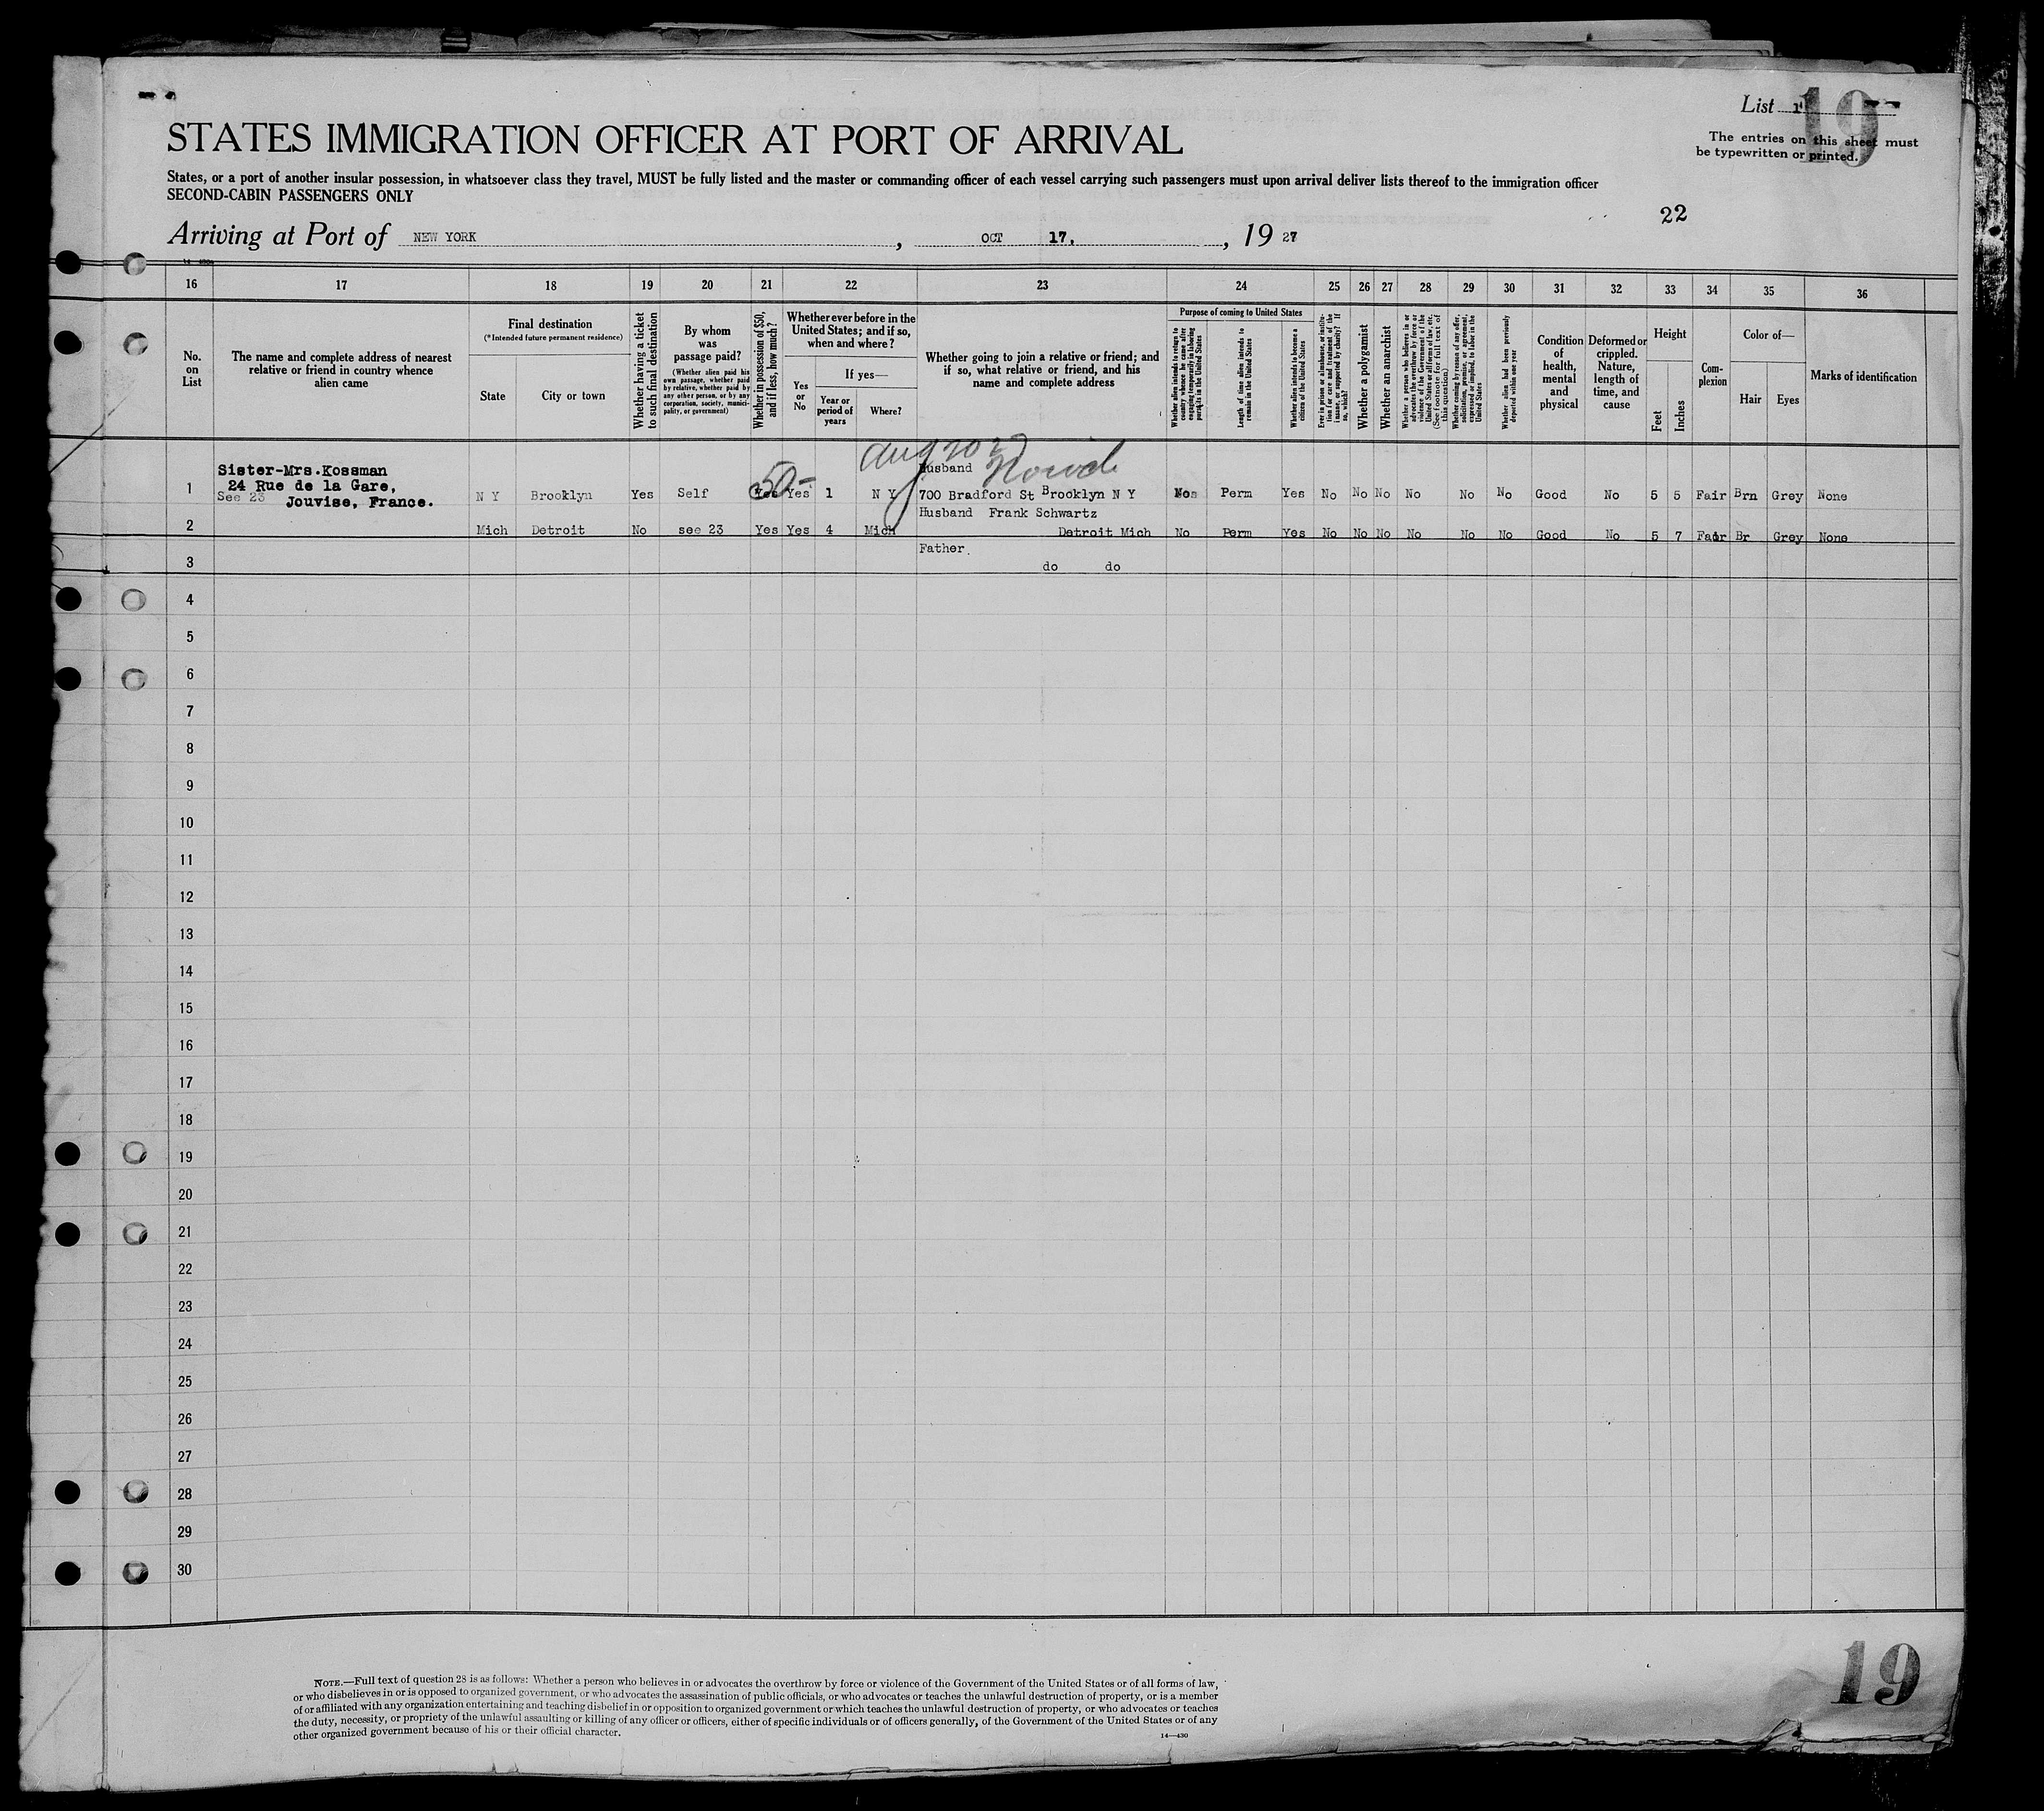 List 19
The entries on this sheet must
be typewritten or printed.
STATES IMMIGRATION OFFICER AT PORT OF ARRIVAL
States, or a port of another insular possession, in whatsoever class they travel, MUST be fully listed and the master or commanding officer of each vessel carrying such passengers must upon arrival deliver lists thereof to the immigration officer
SECOND-CABIN PASSENGERS ONLY
22
Arriving at Port of NEW YORK, OCT 17, 19 27
16 17 18 19 20 21 22 23 24 25 26 27 28 29 30 31 32 33 34 35 36
No. on List
The name and complete address of nearest relative or friend in country whence alien came
Final destination
(*Intended future permanent residence)
State
City or town
Whether having a ticket to such final destination
By whom was passage paid?
(Whether alien paid his own passage, whether paid by relative, whether paid by any other person, or by any corporation, society, municipality, or government)
Whether in possession of $50, and if less, how much?
Whether ever before in the United States; and if so, when and where?
Yes or No
If yes—
Year or period of years
Where?
Whether going to join a relative or friend; and if so, what relative or friend, and his name and complete address
Purpose of coming to United States
Whether alien intends to return to country whence he came after engaging temporarily in laboring pursuits in the United States
Length of time alien intends to remain in the United States
Whether alien intends to become a citizen of the United States
Ever in prison or almshouse, or institution for care and treatment of the insane, or supported by charity? If so, which?
Whether a polygamist
Whether an anarchist
Whether a person who believes in or advocates the overthrow by force or violence of the Government of the United States or all forms of law, etc. (See footnote for full text of this question)
Whether coming by reason of any offer, solicitation, promise, or agreement, expressed or implied, to labor in the United States
Whether alien had been previously deported within one year
Condition of health, mental and physical
Deformed or crippled. Nature, length of time, and cause
Height
Feet
Inches
Complexion
Color of—
Hair
Eyes
Marks of identification
Aug 20
Sister-Mrs.Kossman
24 Rue de la Gare,
See 23 Jouvise, France.
Husband
50-
1 N Y Brooklyn Yes Self Yes Yes 1 N Y 700 Bradford St Brooklyn N Y No Perm Yes No No No No No No Good No 5 5 Fair Brn Grey None
Husband Frank Schwartz
2 Mich Detroit No see 23 Yes Yes 4 Mich Detroit Mich No Perm Yes No No No No No No Good No 5 7 Fair Br Grey None
Father.
3 do do
4
5
6
7
8
9
10
11
12
13
14
15
16
17
18
19
20
21
22
23
24
25
26
27
28
29
30
NOTE.—Full text of question 28 is as follows: Whether a person who believes in or advocates the overthrow by force or violence of the Government of the United States or of all forms of law,
or who disbelieves in or is opposed to organized government, or who advocates the assassination of public officials, or who advocates or teaches the unlawful destruction of property, or is a member
of or affiliated with any organization entertaining and teaching disbelief in or opposition to organized government or which teaches the unlawful destruction of property, or who advocates or teaches
the duty, necessity, or propriety of the unlawful assaulting or killing of any officer or officers, either of specific individuals or of officers generally, of the Government of the United States or of any
other organized government because of his or their official character.
14—430
19